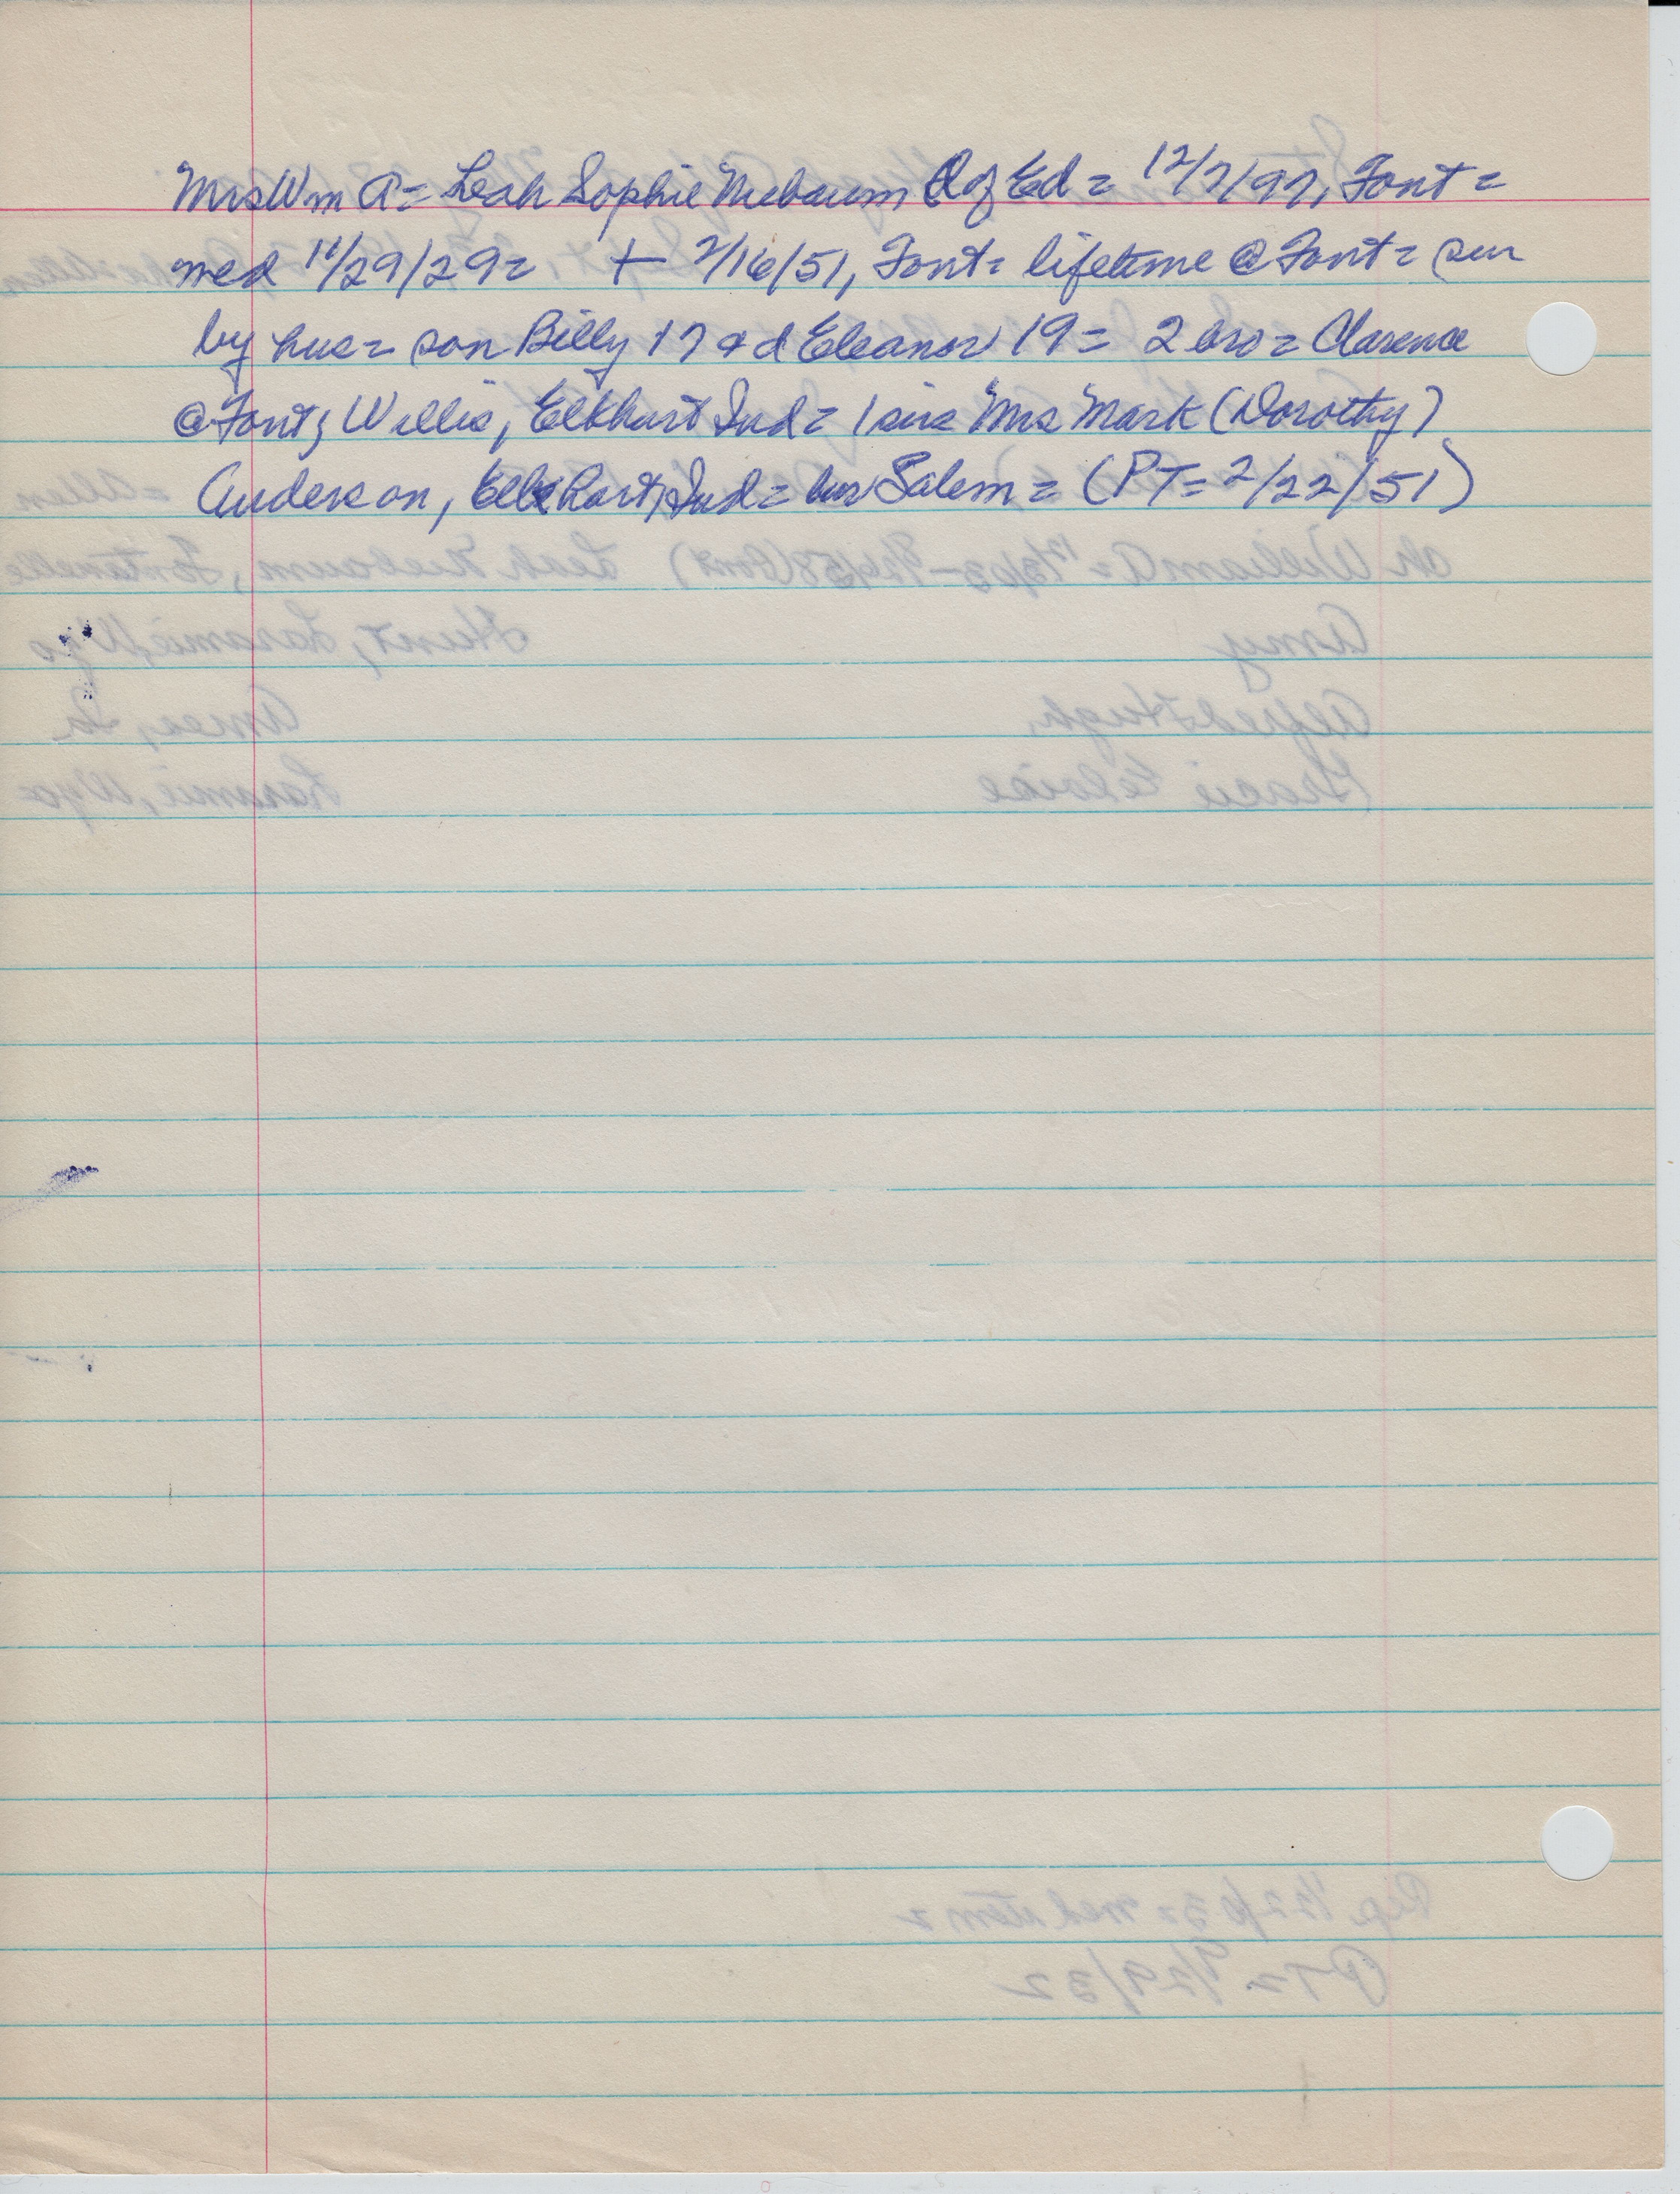 Mrs Wm A= Leah Sophie Niebaum d of Ed = 12/7/97, Font =
med 11/29/29= + 2/16/51, Font= lifetime @ Font= sur
by hus= son Billy 17 & d Eleanor 19= 2 bro= Clarence
@ Font, Willis, Elkhart Ind= 1 sis= Mrs Mark (Dorothy)
Anderson, Elkhart, Ind= bur Salem= (PT= 2/22/51)